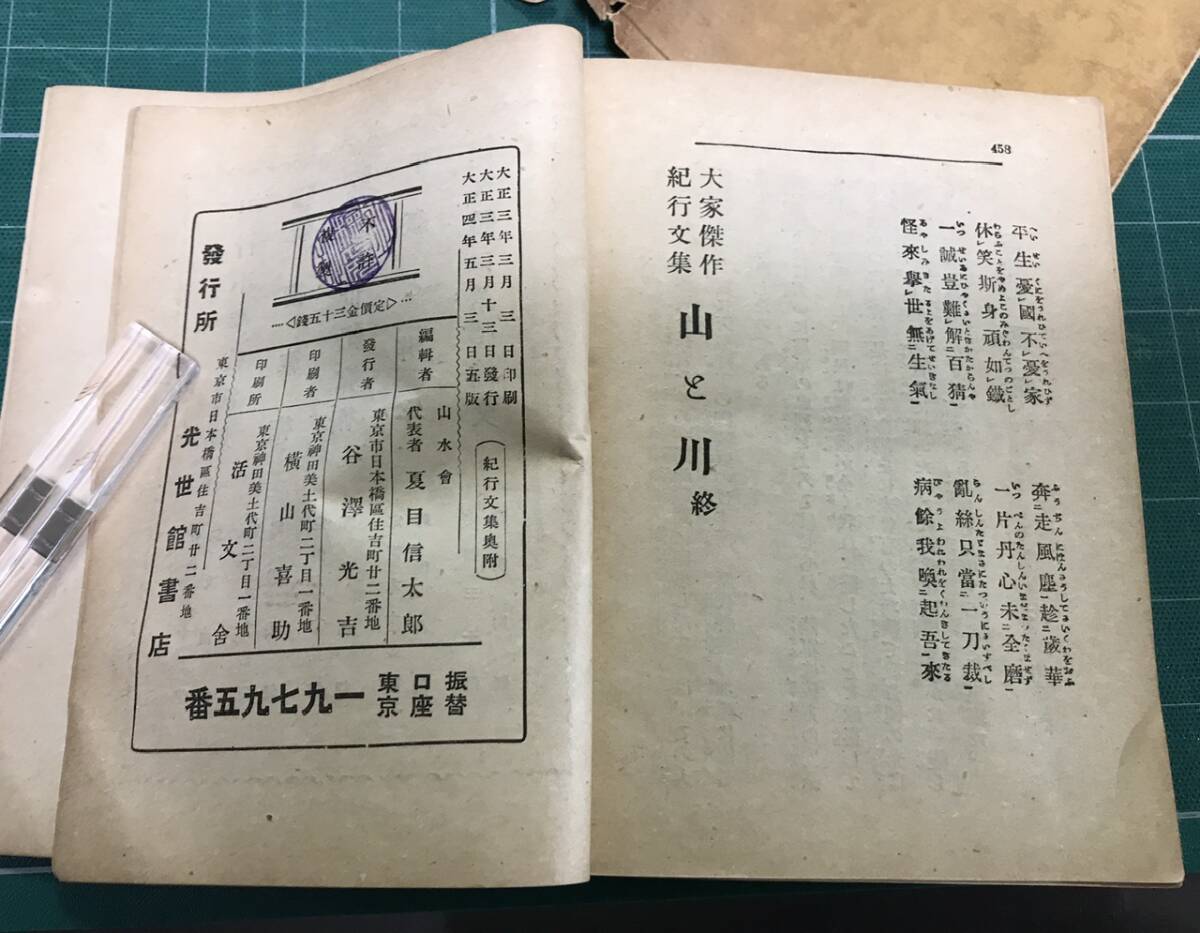 458
平生憂國不憂家
奔走風塵趁歳華
休笑斯身頑如鐵
一片丹心未全磨
一誠豈難解百猜
亂絲只當一刀裁
怪來擧世無生氣
病餘我喚起吾來
大家傑作
紀行文集
山と川終
(紀行文集奥附)
大正三年三月三日印刷
大正三年三月十三日發行
大正四年五月三日五版
不許
複製
…▷定價金三十五錢◁…
編輯者 山水會
代表者 夏目信太郎
發行者 東京市日本橋區住吉町廿二番地
谷澤光吉
印刷者 東京神田美土代町二丁目一番地
横山喜助
印刷所 東京神田美土代町二丁目一番地
活文舍
發行所 東京市日本橋區住吉町廿二番地
光世館書店
振替
口座
東京
一九七九五番